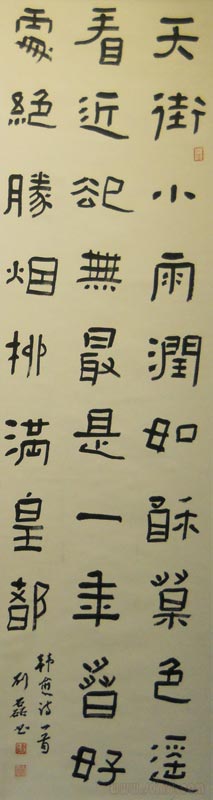 天街小雨潤如酥草色遥
看近卻無最是一年春好
處絕勝烟柳滿皇都
韩愈诗一首
刘磊书